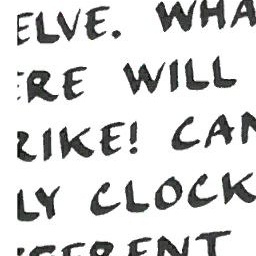 ELVE. WHA
ERE WILL
RIKE! CAN
LY CLOCK
FFERENT